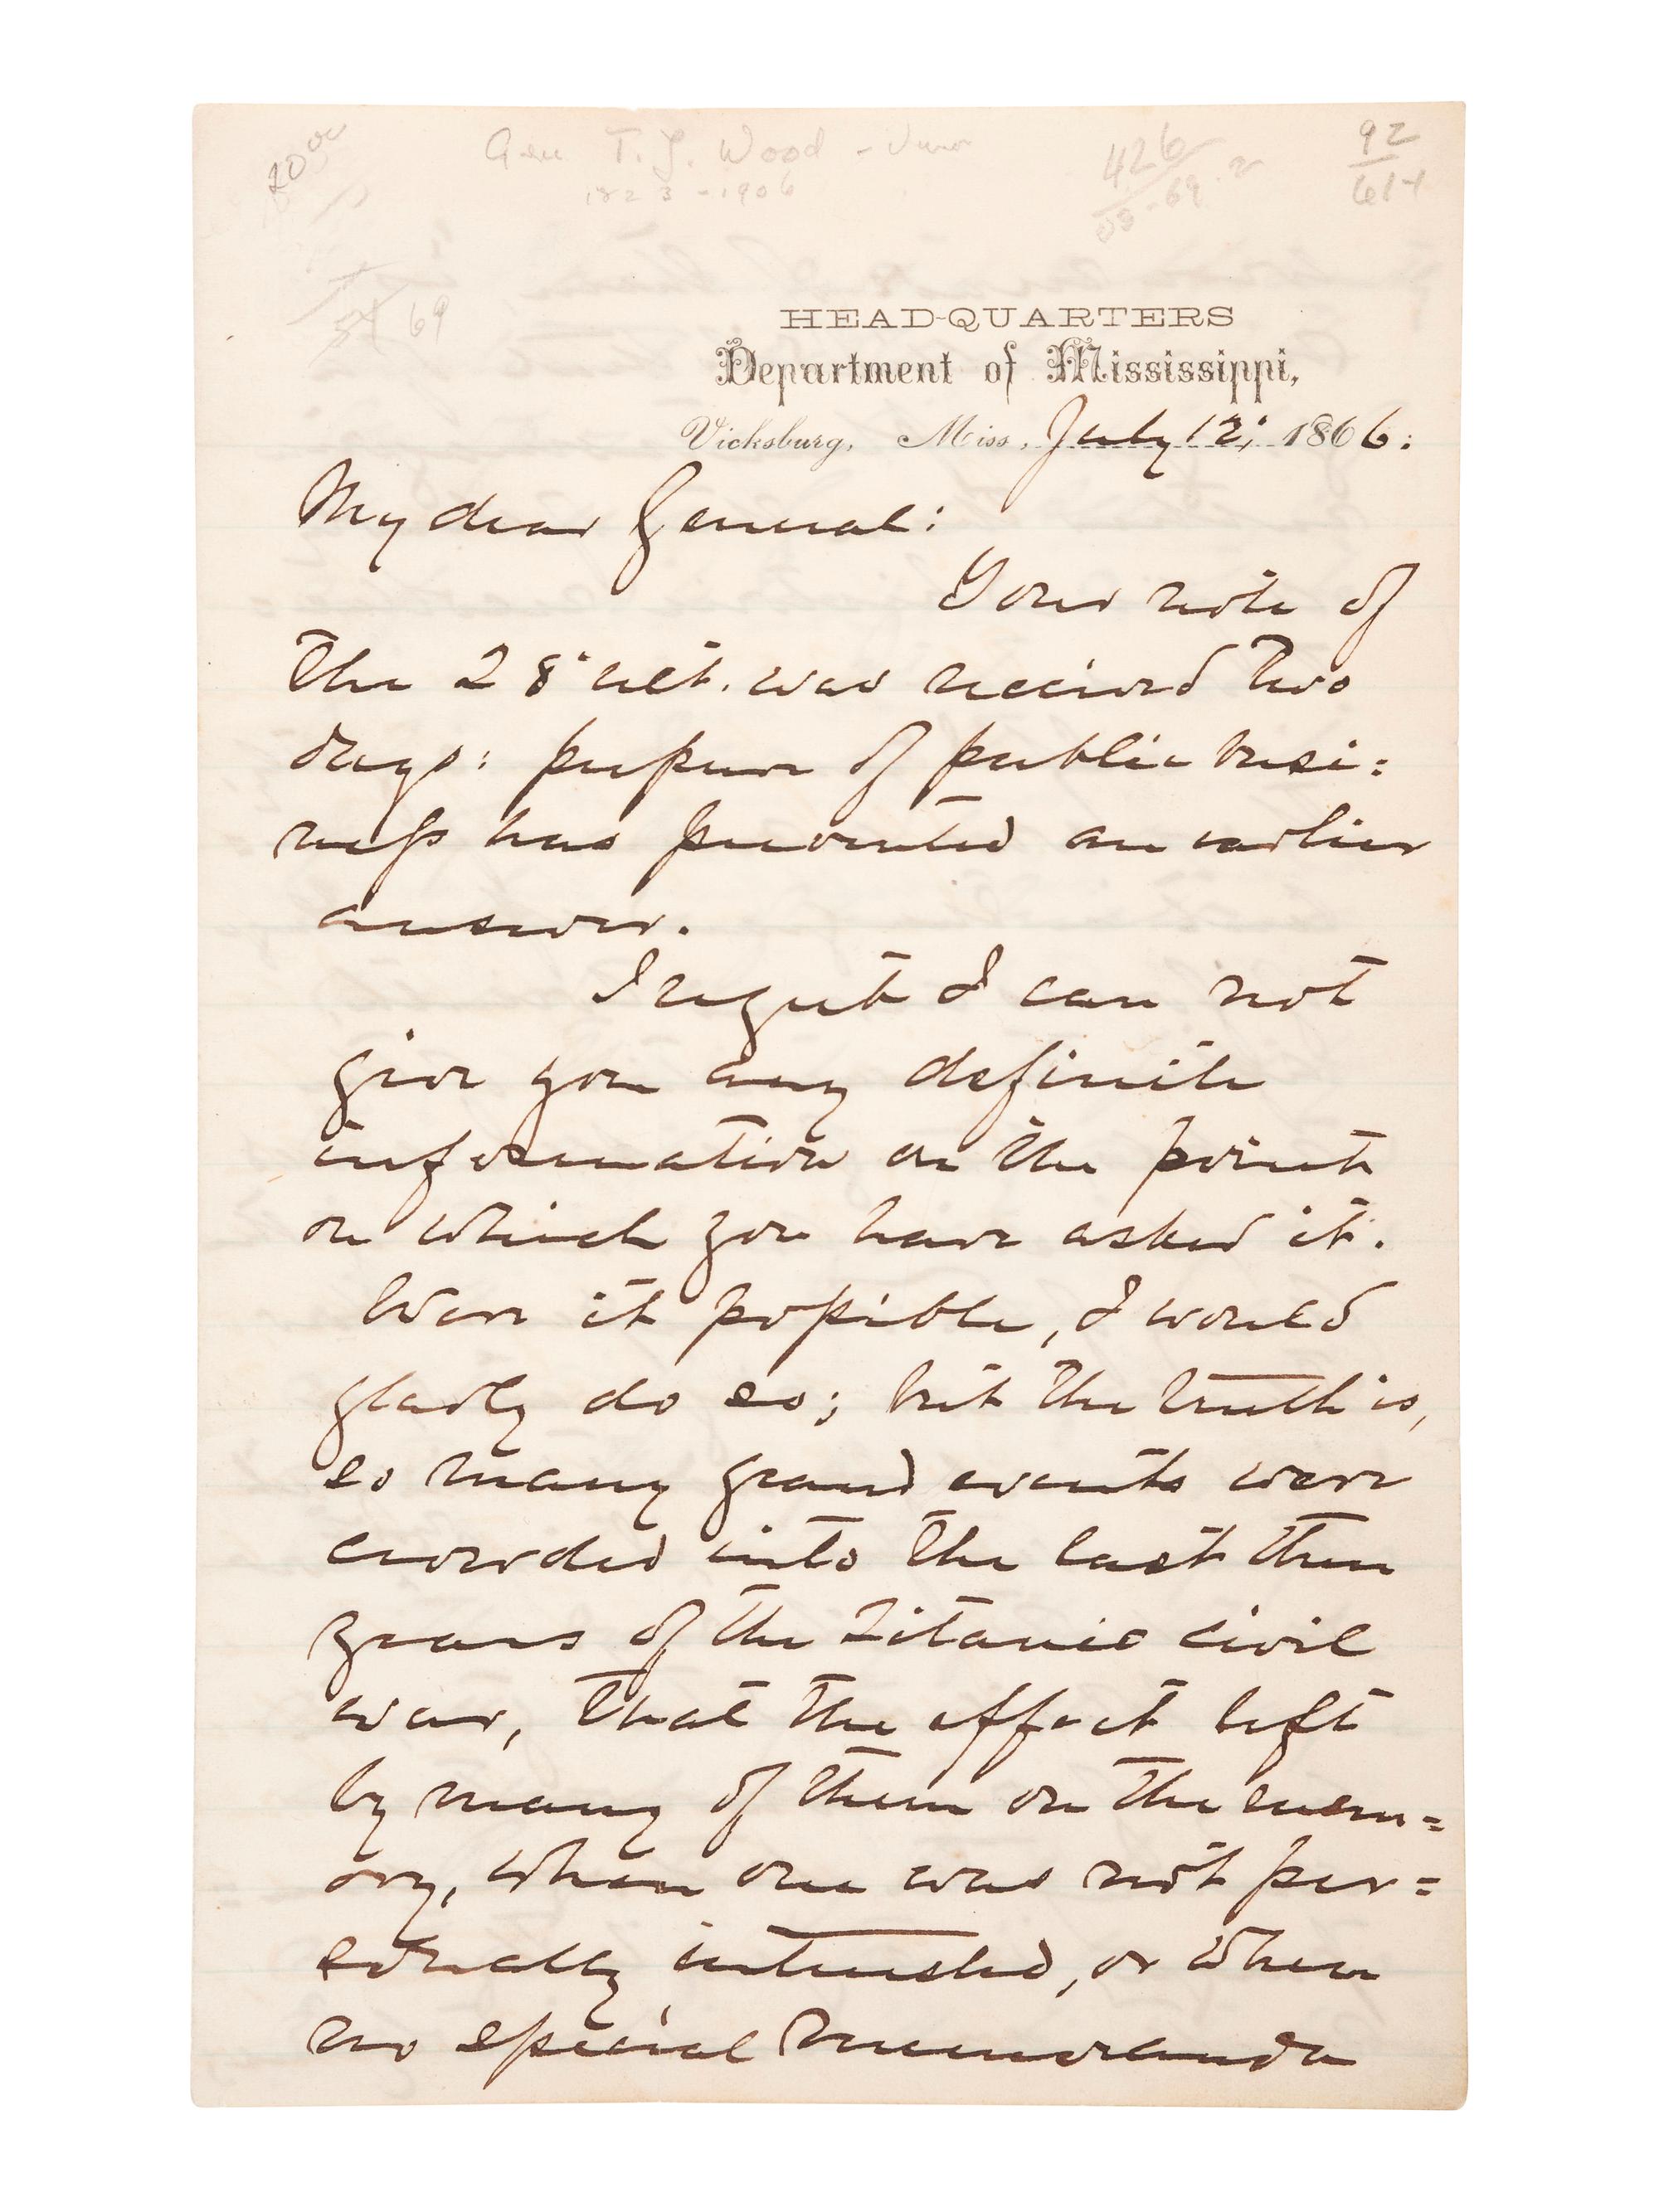 20.00
Gen T. J. Wood -
1823-1906
426
69
92
614
69
HEAD-QUARTERS
Department of Mississippi,
Vicksburg, Miss. July 12, 1866:
My dear General:
Your note of
the 28" ult. was received two
days: pressure of public busi=
ness has prevented an earlier
answer.
I regret I can not
give you any definite
information on the point
on which you have asked it.
Were it possible, I would
gladly do so; but the truth is,
so many grand events were
crowded into the last three
years of the Titanic civil
war, that the effect left
by many of them on the mem=
ory, when one was not per=
sonally interested, or when
no special memoranda